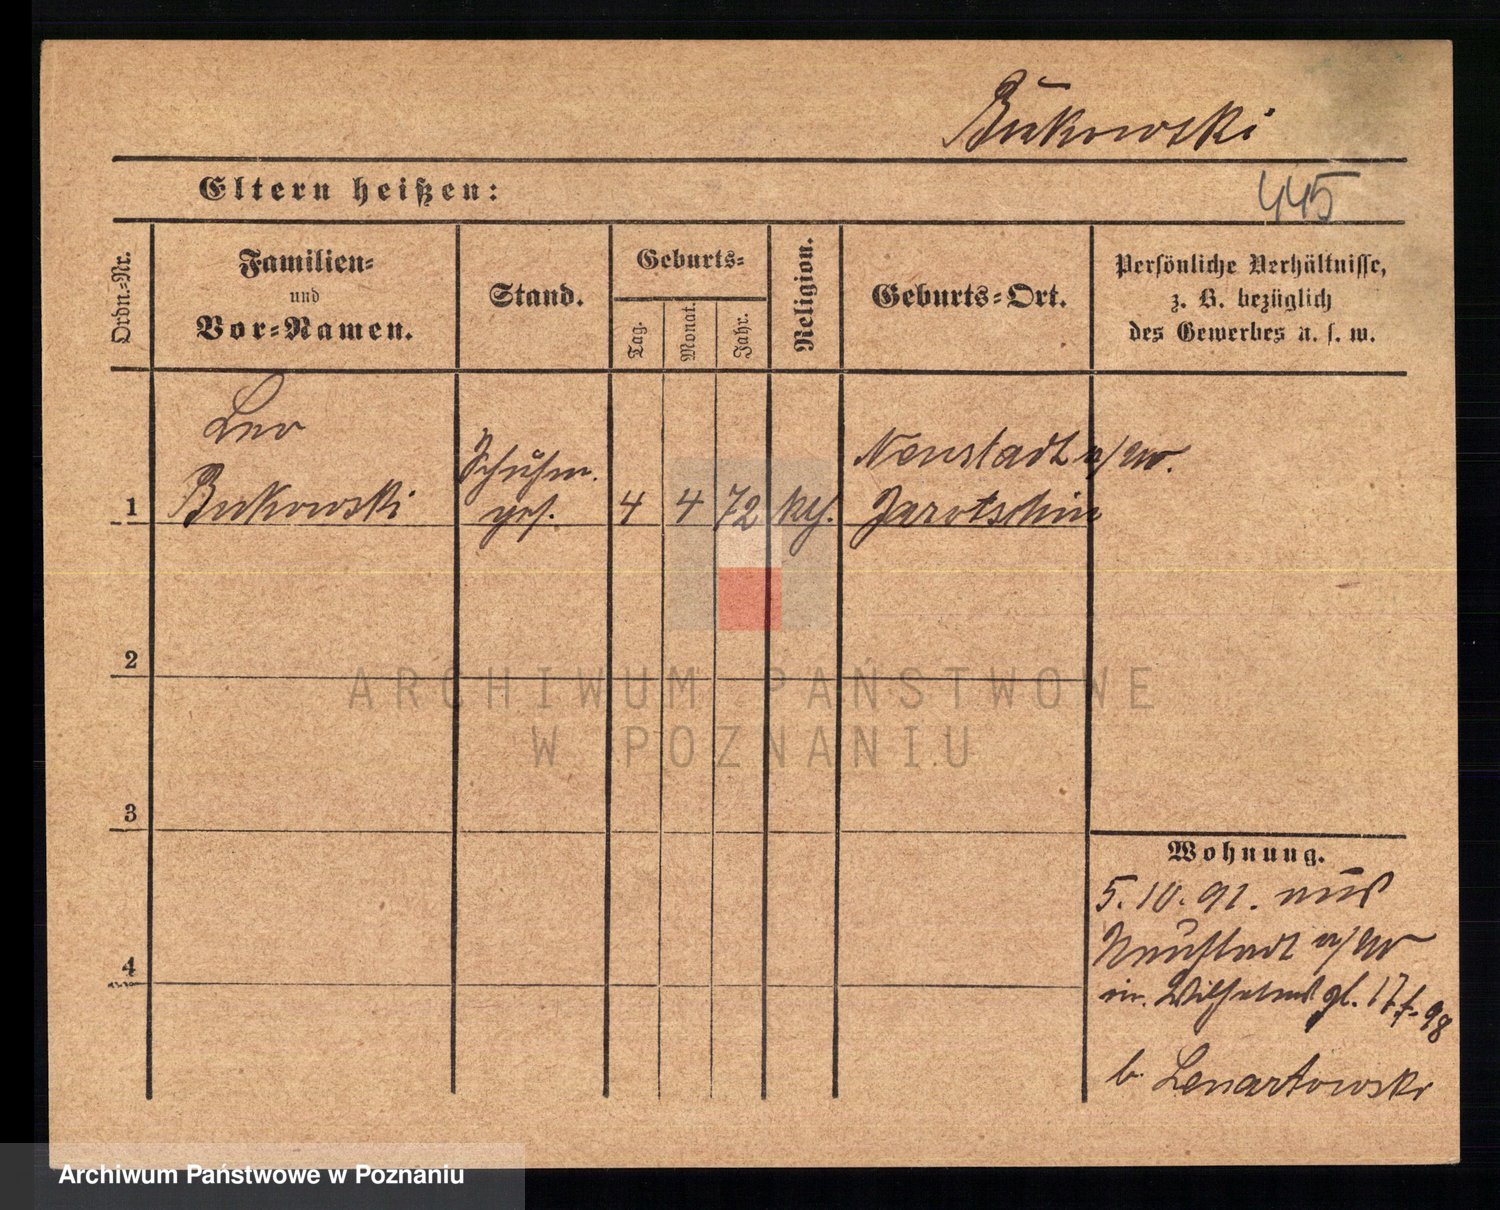 Bukowski
Eltern heißen:
445
Ordn.-Nr.
Familien-
und
Vor-Namen.
Stand.
Geburts-
Tag.
Monat.
Jahr.
Religion.
Geburts-Ort.
Persönliche Verhältnisse,
z. B. bezüglich
des Gewerbes u. s. w.
Leo
1 Bukowski
Schuhm.
ges.
4 4 72 kth.
Neustadt a/W.
Jarotschin
2
3
4
Wohnung.
5.10.91. aus
Neustadt a/W
b. Lenartowski
ARCHIWUM PAŃSTWOWE
W POZNANIU
Archiwum Państwowe w Poznaniu